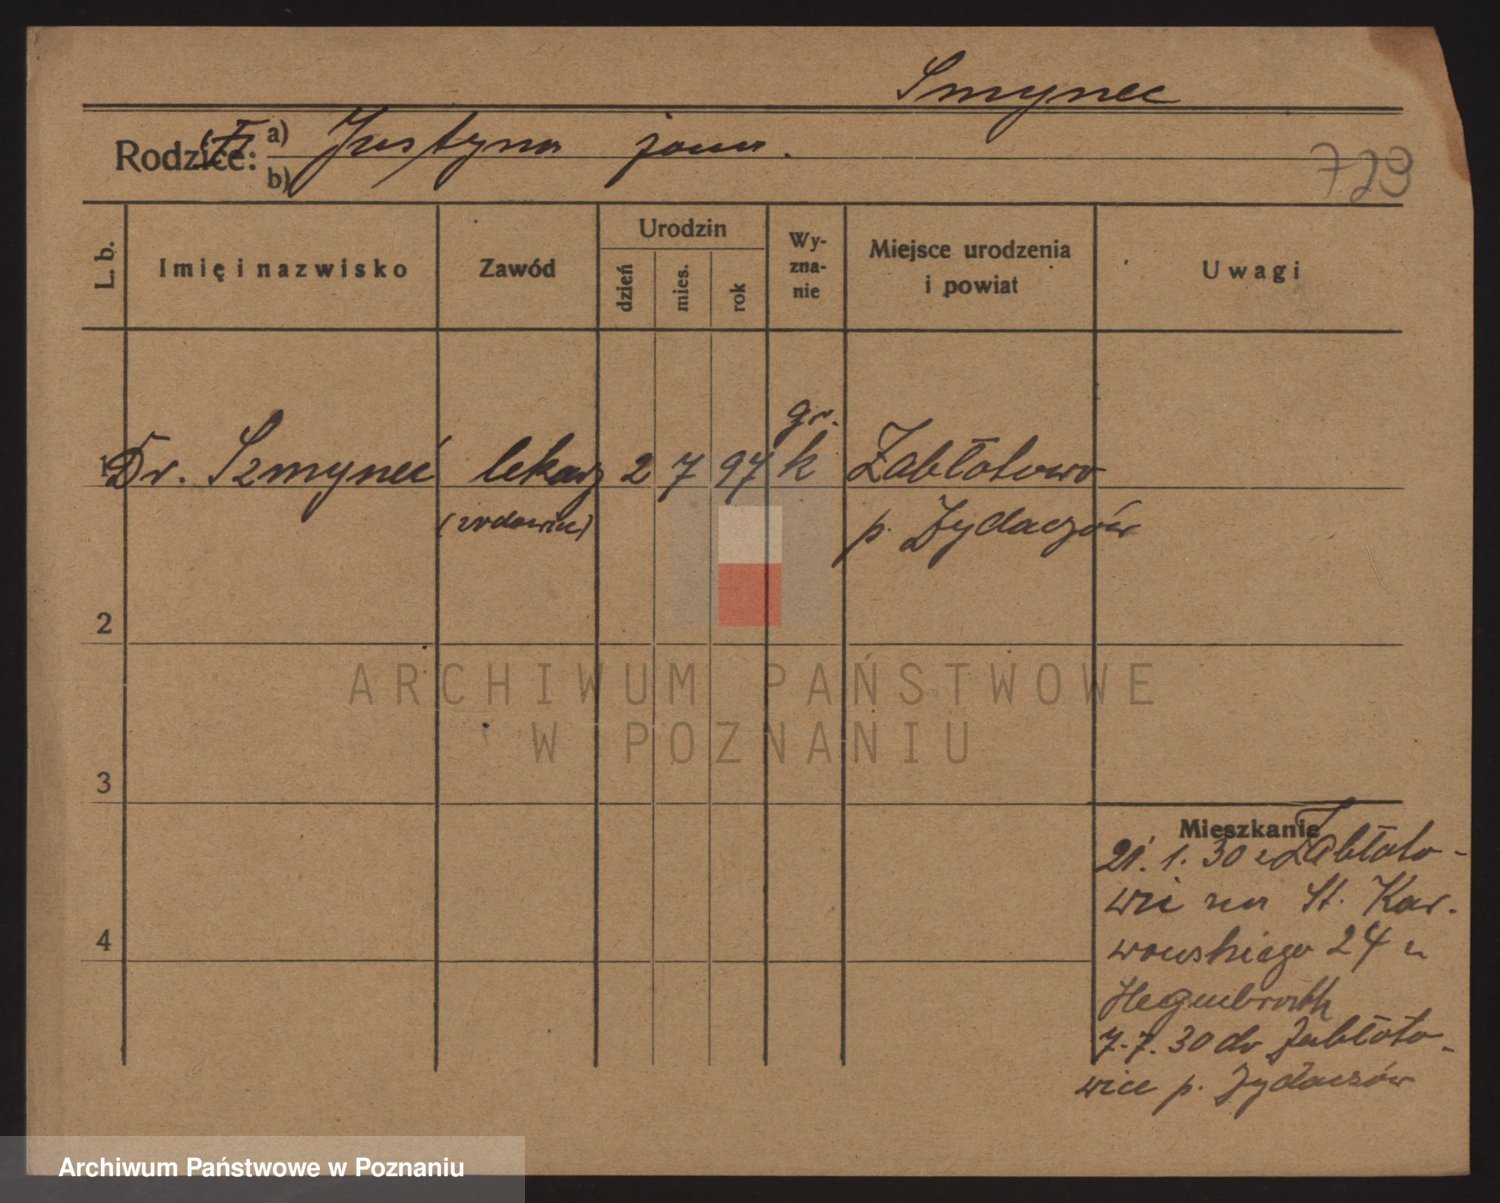 Smynec
Rodzice: a) Justyna
b)
723
L. b.
Imię i nazwisko
Zawód
Urodzin
dzień
mies.
rok
Wy-
zna-
nie
Miejsce urodzenia
i powiat
Uwagi
gr.
1 Dr. Szmyneć lekarz 2 7 97 k Zabłotowo
p. Żydaczów
2
3
Mieszkanie
21. 1. 30 z Zabłoto-
wic na St. Kar-
wowskiego 24 u
7.7.30 do Zabłoto-
wice p. Żydaczów
4
ARCHIWUM PAŃSTWOWE
W POZNANIU
Archiwum Państwowe w Poznaniu